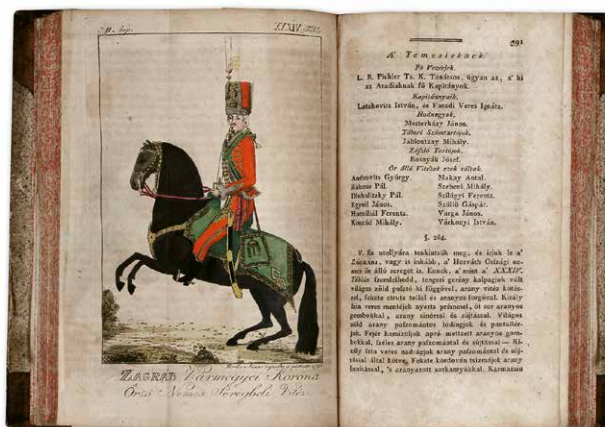 XXXIV. Tábla
ZÁGRÁB Vármegyei Korona
Őrző Nemes Seregbéli Vitéz
291
A' Temesieknek.
Fő Vezérjek.
L. B. Pichler Ts. K. Tanátsos, úgyan az, a' ki
az Aradiaknak fő Kapitányok.
Kapitánnyaik.
Latzkovits István, és Faradi Veres Ignátz.
Hadnagyok.
Mesterházy János.
Tábori Szóntartójok.
Jablontzay Mihály.
Zászló Tartójok.
Rosnyák Jósef.
Őr álló Vitézek ezek vóltak.
Androvits György. Makay Antal.
Rákosi Pál. Szebeni Mihály.
Dishalitzky Pál. Szilágyi Ferentz.
Egyed János. Szőllő Gáspár.
Hannibál Ferentz. Varga János.
Konrád Mihály. Várkonyi István.
§. 264.
V. Sa utollyára tekintsük meg, és írjuk le a'
ZÁGRÁBI, vagy is inkább, a' Horváth Országi ne-
mes őr álló sereget is. Ennek, a' mint a' XXXIV.
Táblán szemlélhedd, tengeri gerény kalpagjok vólt
világos zöld posztó ki függővel, arany vitéz kötés-
sel, fekete strutz tollal és aranyos forgóval. Király
szín veres mentéjek nyertz prémmel, öt sor aranyos
gombokkal, arany sinórral és sújtással. Világos
zöld arany paszomántos lódingjok és pantallér-
jok. Fejér kamizoljok apró metzett aranyos gom-
bokkal, széles arany paszománttal és sújtással — Ki-
rály szín veres nadrágjok arany paszománttal és súj-
tással által kötve. Fekete kordován tsizmájok arany
bojttással, 's aranyozott sarkantyúkkal. Karmazsin